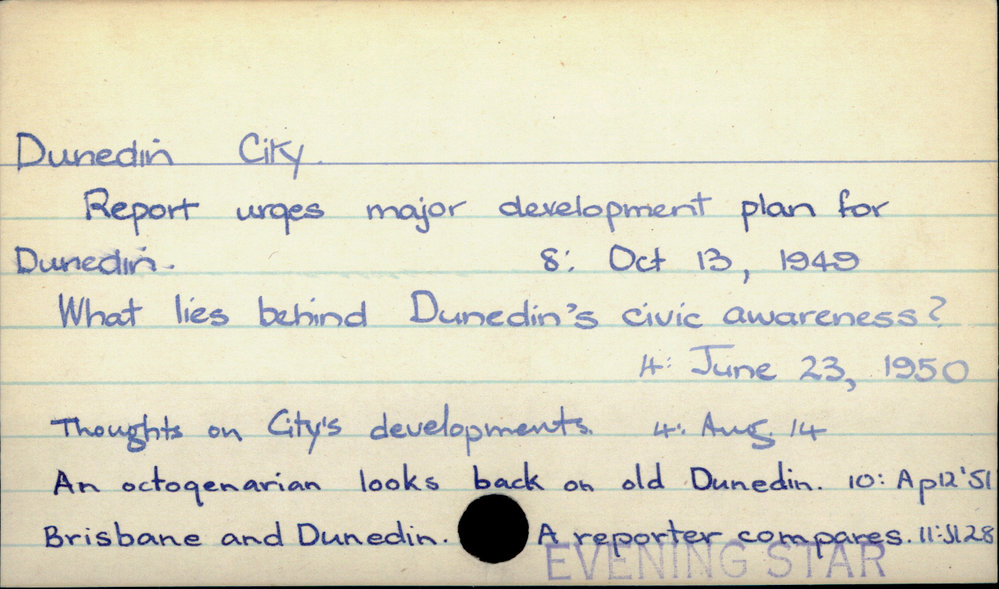 Dunedin City.
Report urges major development plan for
Dunedin. 8: Oct 13, 1949
What lies behind Dunedin's civic awareness?
4: June 23, 1950
Thoughts on City's developments. 4: Aug. 14
An octogenarian looks back on old Dunedin. 10: Ap12'51
Brisbane and Dunedin. A reporter compares. 11:Jl28
EVENING STAR